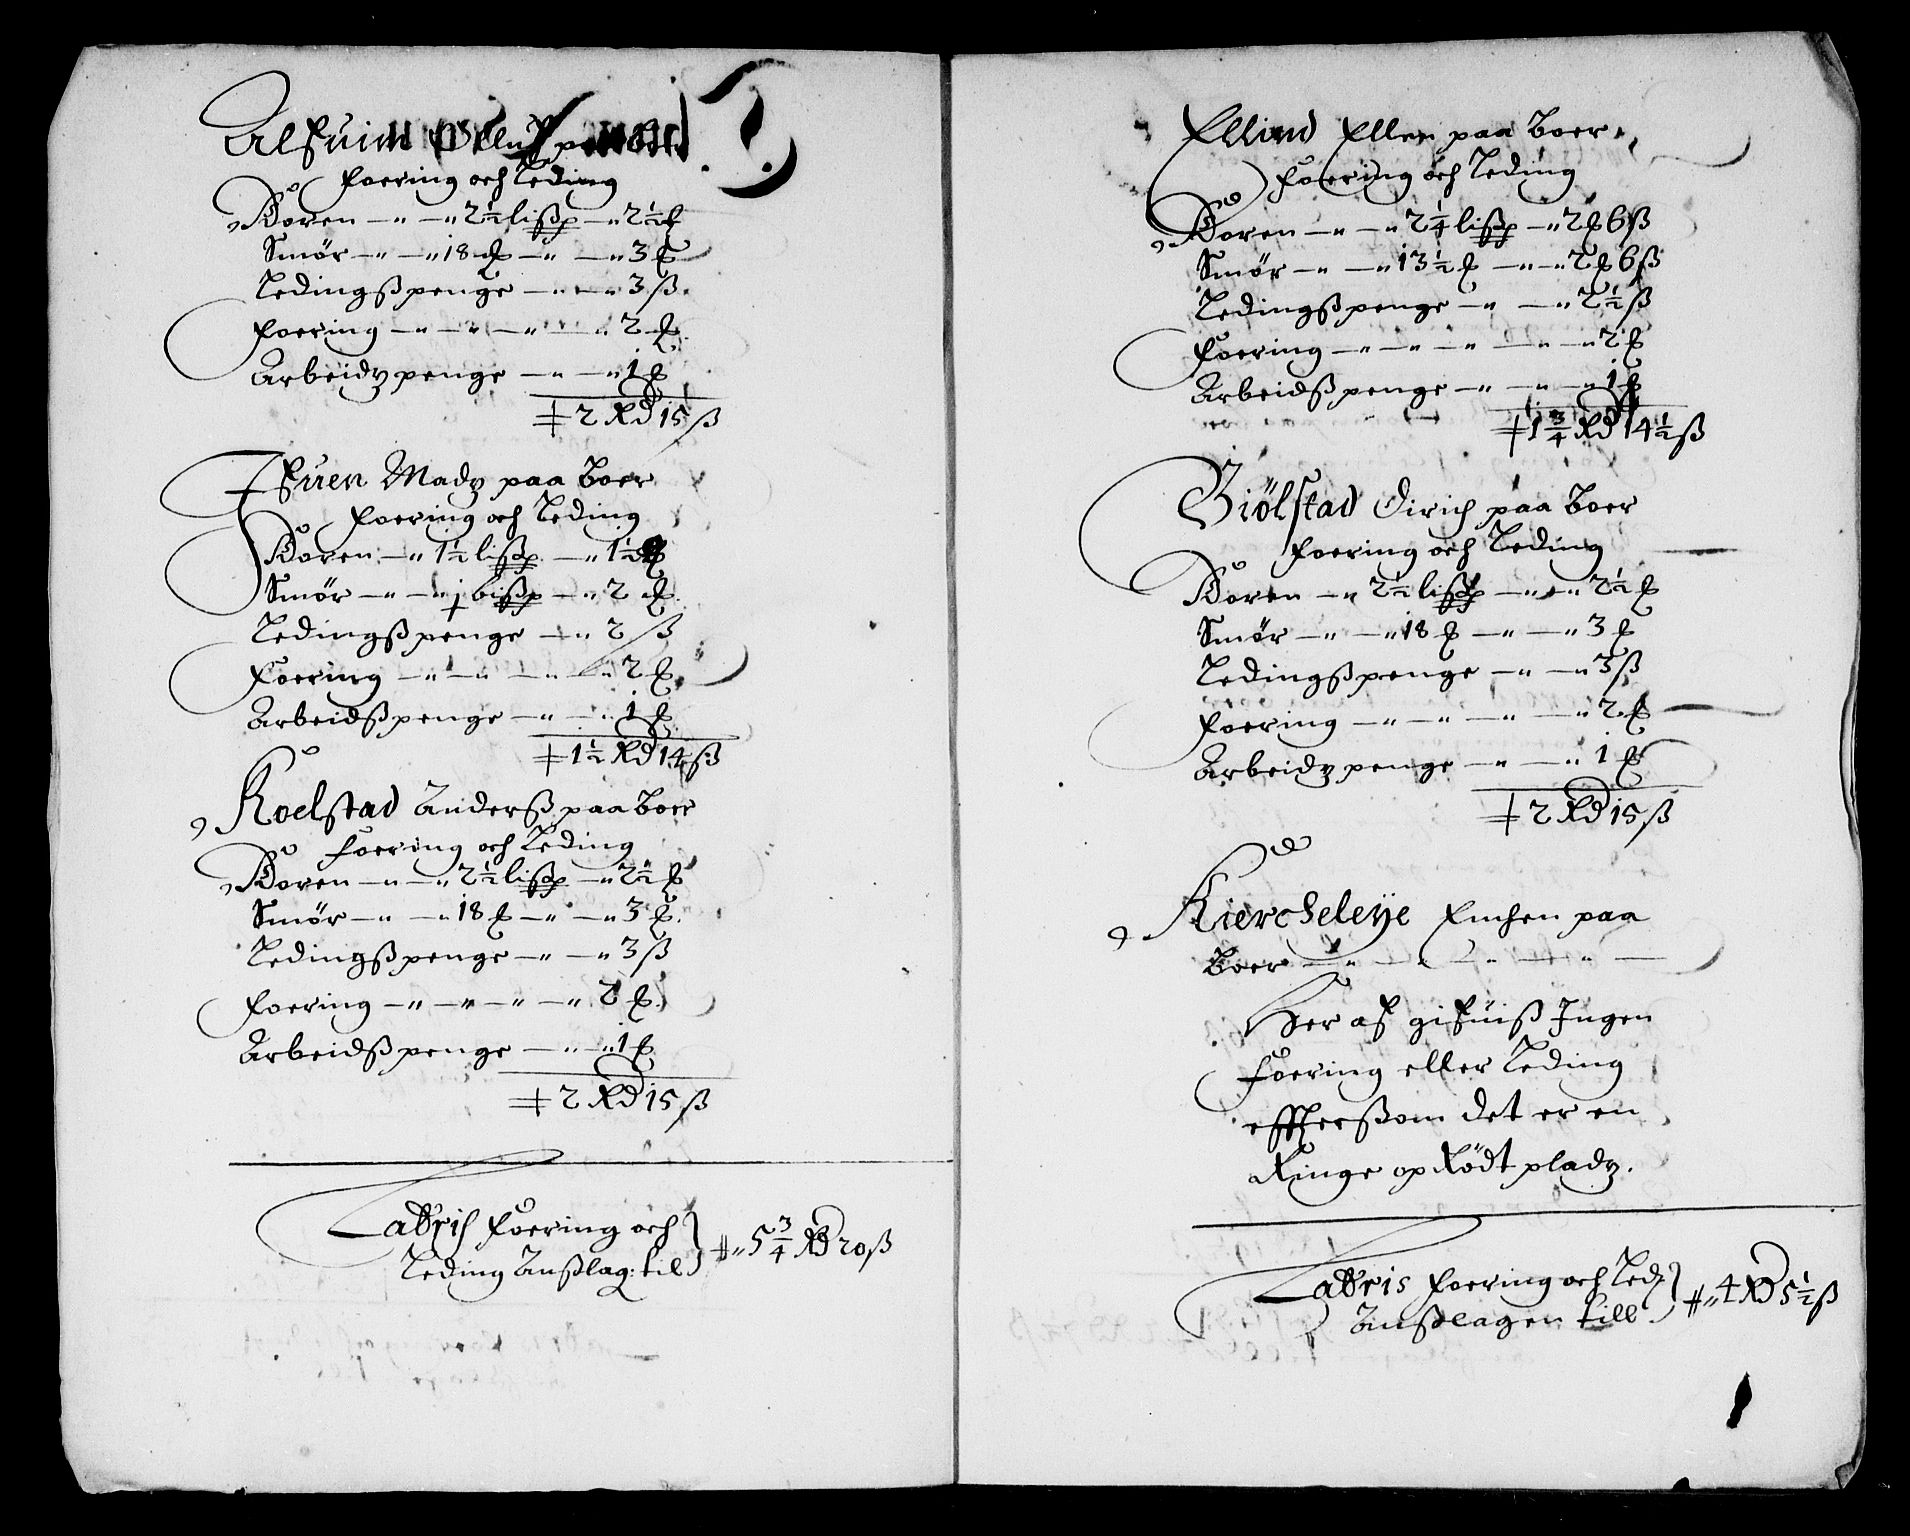 Alfuim paa boer
Foering och Leding
Koren — „ — „ 2½ lißp — „ 2½ ℔
Smør — „ — „ 18 ℔ — „ — „ 3 ℔
Ledingßpenge — „ — „ 3 ß.
Foering — „ — „ — „ — „ 2 ℔
Arbeidz penge — „ — „ 1 ℔
‡ 2 Rd 15 ß
Ifuen Madz paa boer
Foering och Leding
Koren — „ 1½ lißp — „ 1½ ℔
Smør — „ — „ j bißp — „ 2 ℔
Ledingßpenge — „ 2 ß
Foering — „ — „ — „ — „ 2 ℔
Arbeidßpenge — „ — „ 1 ℔
‡ 1½ Rd 14 ß
Koelstad Anderß paa boer
Foering och Leding
Koren — „ — „ 2½ lißp — „ 2½ ℔
Smør — „ — „ 18 ℔ — „ — „ 3 ℔.
Ledingßpenge — „ — „ 3 ß
Foering — „ — „ — „ — „ 2 ℔.
Arbeidßpenge — „ — „ 1 ℔
‡ 2 Rd 15 ß
Latris Foering och
Leding Anßlag: till } ‡ „ 5¾ Rd 20 ß
Ellind Ellen paa boer
Foering och Leding
Koren — „ — „ 2¼ lißp — „ 2 ℔ 6 ß
Smør — „ — „ 13½ ℔ — „ — „ 2 ℔ 6 ß
Ledingßpenge — „ — „ 2½ ß
Foering — „ — „ — „ — „ — „ 2 ℔
Arbeidßpenge — „ — „ — „ 1 ℔
‡ 1¾ Rd 14½ ß
Biölstad Dirich paa boer
Foering och Leding
Koren — „ 2½ lißp — „ — „ 2½ ℔
Smør — „ — „ 18 ℔ — „ — „ 3 ℔
Ledingßpenge — „ — „ 3 ß
Foering — „ — „ — „ — „ 2 ℔
Arbeidz penge — „ — „ 1 ℔
‡ 2 Rd 15 ß
Kiercheleye Enchen paa
boer — „ — „ — „ —
Her af gifuiß Ingen
Foering eller Leding
effterßom det er en
Ringe op Rödt pladz.
Latris Foering och Led:
Anßlagen till } ‡ „ 4 Rd 5½ ß